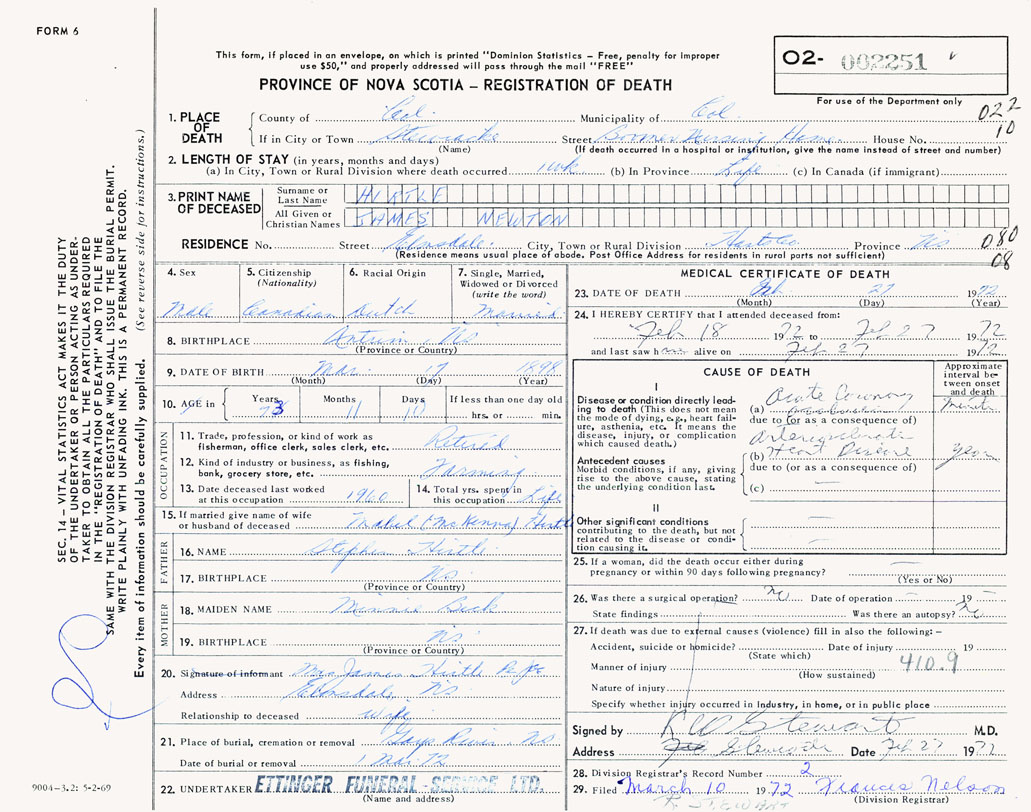 FORM 6
This form, if placed in an envelope, on which is printed "Dominion Statistics – Free, penalty for improper
use $50," and properly addressed will pass through the mail "FREE"
O2- 002251
For use of the Department only
PROVINCE OF NOVA SCOTIA – REGISTRATION OF DEATH
022
10
1. PLACE OF DEATH
County of Col. Municipality of Col.
If in City or Town Stewiacke Street Nursing Home House No.
(Name) (If death occurred in a hospital or institution, give the name instead of street and number)
2. LENGTH OF STAY (in years, months and days)
(a) In City, Town or Rural Division where death occurred 1 wk (b) In Province Life (c) In Canada (if immigrant)
3. PRINT NAME OF DECEASED
Surname or Last Name HIRTLE
All Given or Christian Names JAMES NEWTON
RESIDENCE No. Street Elmsdale City, Town or Rural Division Hants Co. Province NS
(Residence means usual place of abode. Post Office Address for residents in rural parts not sufficient)
080
08
4. Sex
Male
5. Citizenship (Nationality)
Canadian
6. Racial Origin
Dutch
7. Single, Married, Widowed or Divorced (write the word)
Married
8. BIRTHPLACE Antrim NS
(Province or Country)
9. DATE OF BIRTH Mar. 17 1898
(Month) (Day) (Year)
10. AGE in Years 73 Months 11 Days 10 If less than one day old
hrs. or min.
OCCUPATION
11. Trade, profession, or kind of work as
fisherman, office clerk, sales clerk, etc. Retired
12. Kind of industry or business, as fishing,
bank, grocery store, etc. Farming
13. Date deceased last worked
at this occupation 1960
14. Total yrs. spent in
this occupation Life
15. If married give name of wife
or husband of deceased Mabel (McKenna) Hirtle
FATHER
16. NAME Stephen Hirtle
17. BIRTHPLACE NS
(Province or Country)
MOTHER
18. MAIDEN NAME Minnie
19. BIRTHPLACE NS
(Province or Country)
20. Signature of informant Mrs James Hirtle
Address Elmsdale NS
Relationship to deceased wife
21. Place of burial, cremation or removal Gays River NS
Date of burial or removal 1 Mar. 72
22. UNDERTAKER ETTINGER FUNERAL SERVICE LTD.
(Name and address)
MEDICAL CERTIFICATE OF DEATH
23. DATE OF DEATH Feb 27 1972
(Month) (Day) (Year)
24. I HEREBY CERTIFY that I attended deceased from:
Feb 18 1972 to Feb 27 1972
and last saw him alive on Feb 27 1972
CAUSE OF DEATH
Approximate interval between onset and death
I
Disease or condition directly leading to death (This does not mean
the mode of dying, e.g., heart failure, asthenia, etc. It means the
disease, injury, or complication
which caused death.)
(a) Acute Coronary occlusion
due to (or as a consequence of)
Antecedent causes
Morbid conditions, if any, giving
rise to the above cause, stating
the underlying condition last.
(b) Arteriosclerotic Heart Disease
due to (or as a consequence of)
(c) –
II
Other significant conditions
contributing to the death, but not
related to the disease or condition causing it.
25. If a woman, did the death occur either during
pregnancy or within 90 days following pregnancy? –
(Yes or No)
26. Was there a surgical operation? No Date of operation – 19 –
State findings – Was there an autopsy? No
27. If death was due to external causes (violence) fill in also the following: –
Accident, suicide or homicide? Date of injury 19
(State which)
Manner of injury 410.9
(How sustained)
Nature of injury
Specify whether injury occurred in Industry, in home, or in public place
Signed by R W Stewart M.D.
Address Stewiacke Date Feb 27 1972
28. Division Registrar's Record Number 2
29. Filed March 10 1972 Francis Nelson
(Division Registrar)
R. STEWART
SEC. 14 – VITAL STATISTICS ACT MAKES IT THE DUTY
OF THE UNDERTAKER OR PERSON ACTING AS UNDER-
TAKER TO OBTAIN ALL THE PARTICULARS REQUIRED
IN THE "REGISTRATION OF DEATH" AND TO FILE THE
SAME WITH THE DIVISION REGISTRAR WHO SHALL ISSUE THE BURIAL PERMIT.
WRITE PLAINLY WITH UNFADING INK. THIS IS A PERMANENT RECORD.
Every item of information should be carefully supplied. (See reverse side for instructions.)
9004–3.2: 5-2-69